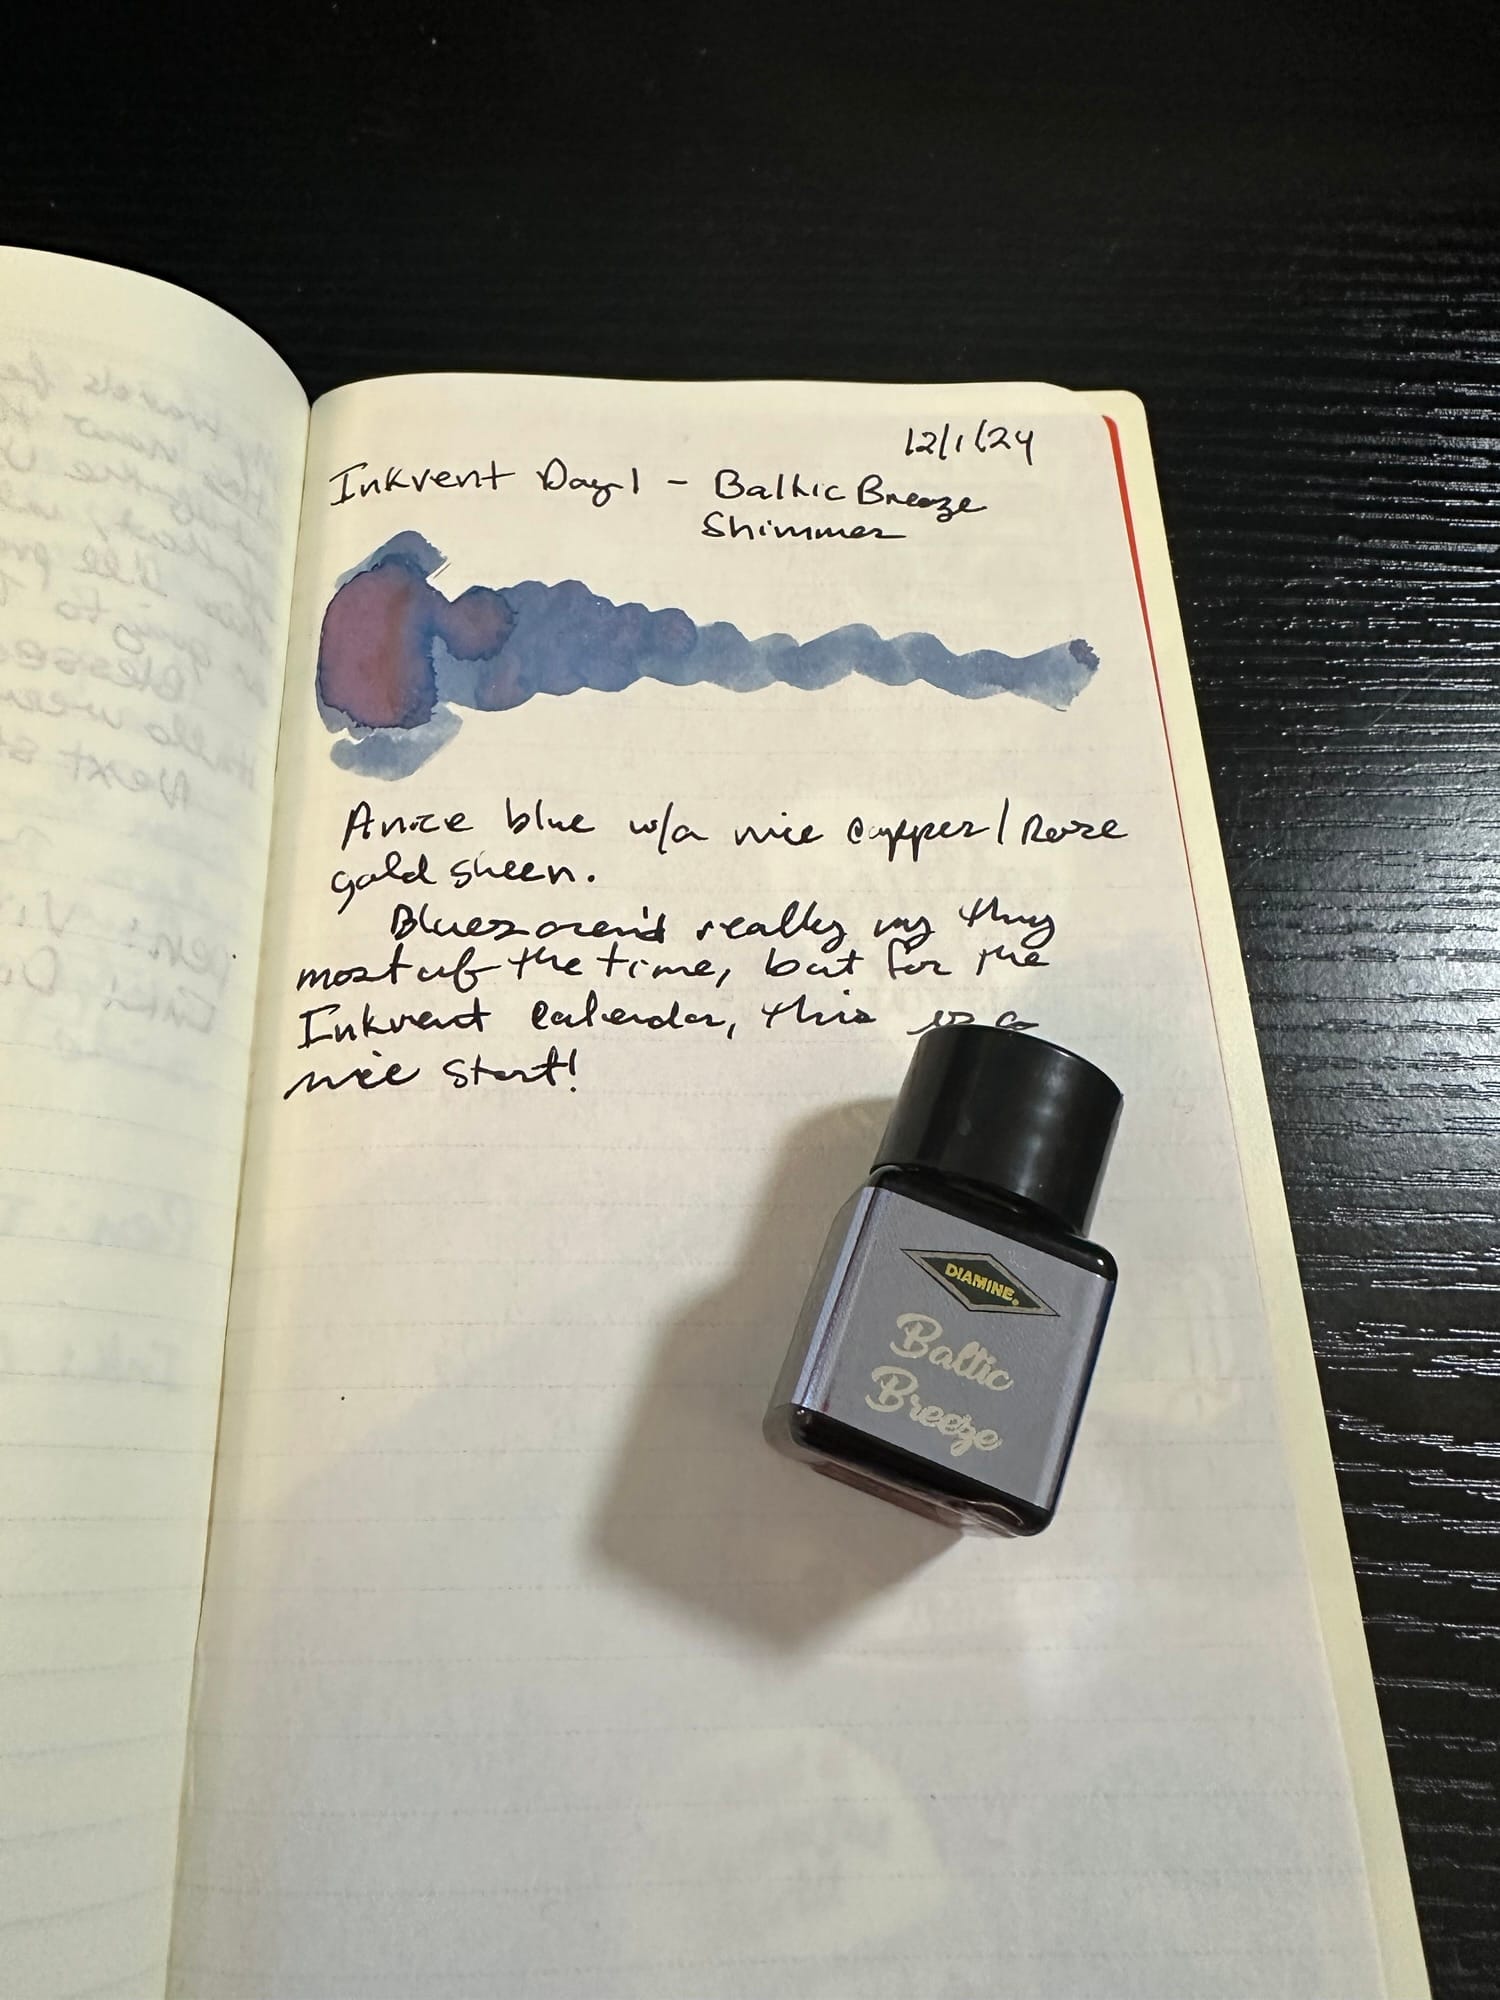 12/1/24
Inkvent Day 1 - Baltic Breeze
Shimmer
A nice blue w/a nice copper/Rose
gold sheen.
Blues aren't really my thing
most of the time, but for the
Inkvent Calendar, this is a
nice start!
DIAMINE.
Baltic
Breeze